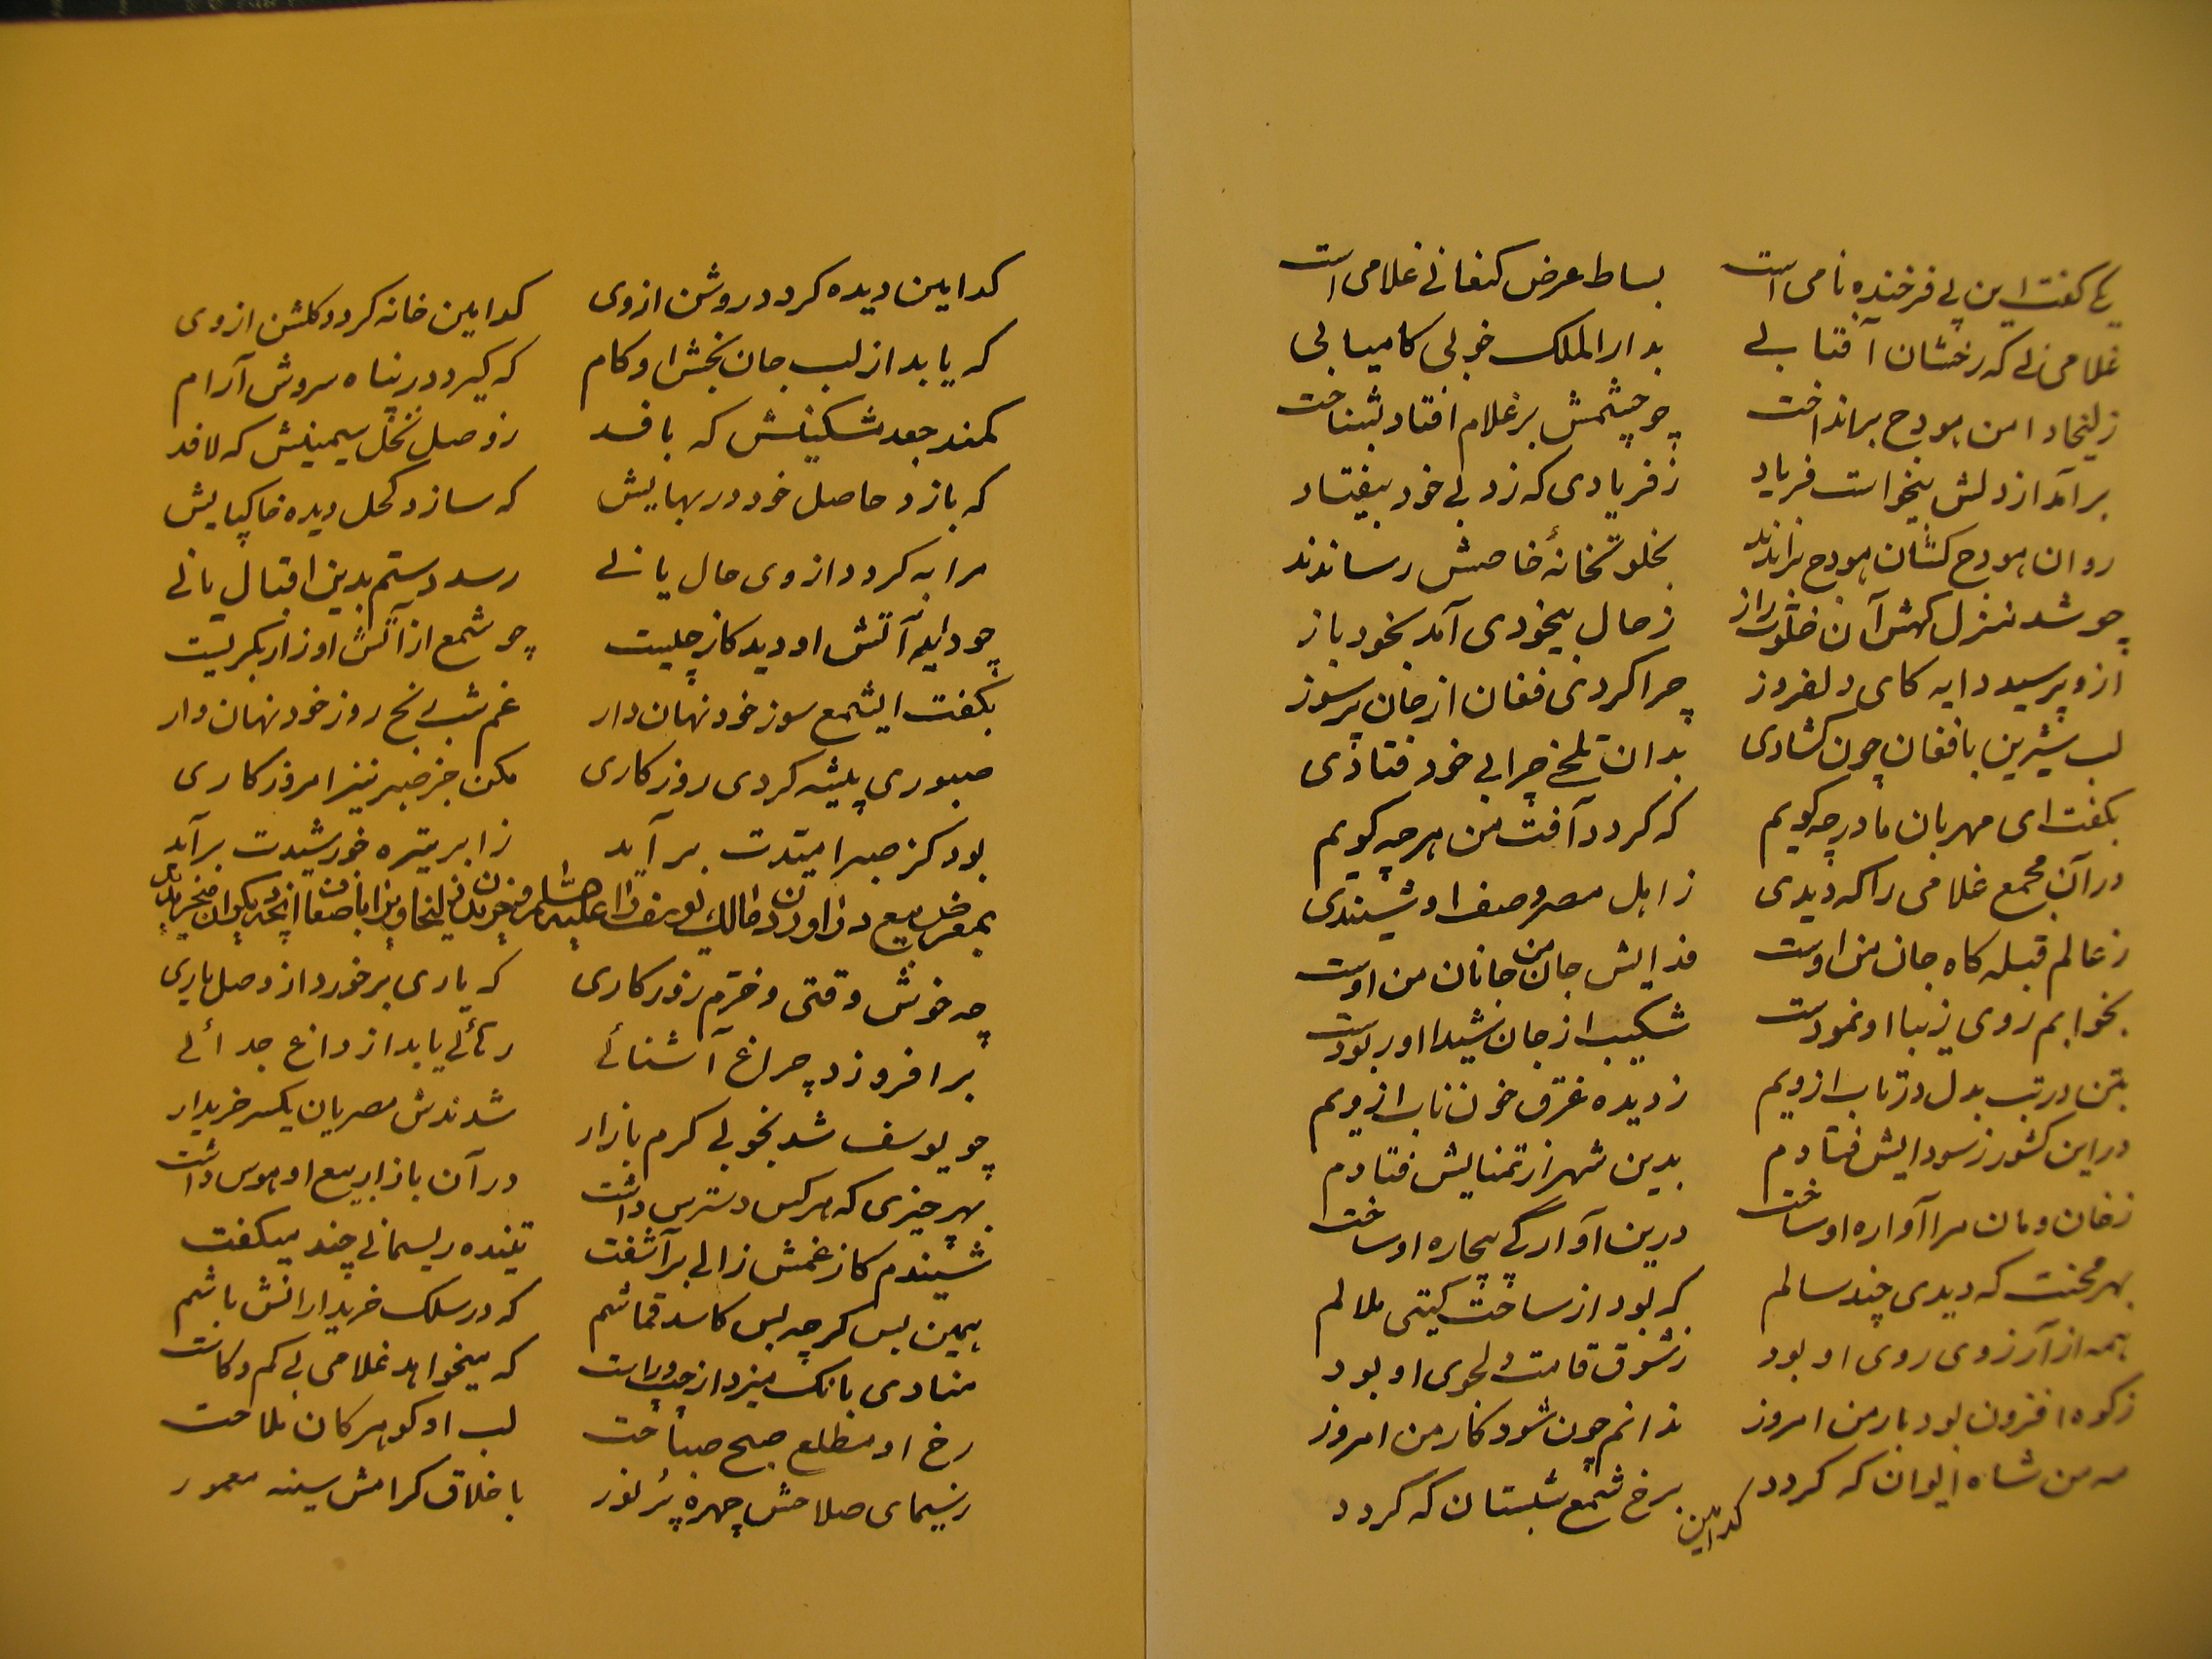 یکی گفت این پی فرخنده نامی است بساط عرض کنعانی غلامی است
غلامی نی که رخشان آفتابی بدار الملک خوبی کامیابی
زلیخا دامن هودج برانداخت چو چشمش بر غلام افتاد بشناخت
برآمد از دلش بیخواست فریاد ز فریادی که زد بی خود بیفتاد
روان هودج کشان هودج براندند بخلوتخانهٔ خاصش رساندند
چو شد منزل گهش آن خلوت راز ز حال بیخودی آمد بخود باز
ازو پرسید دایه کای دلفروز چرا کردی فغان از جان پرسوز
لب شیرین بافغان چون گشادی بدان تلخی چرا بی خود فتادی
بگفت ای مهربان مادر چه گویم که گردد آفت من هر چه گویم
در آن مجمع غلامی را که دیدی ز اهل مصر وصف او شنیدی
ز عالم قبله گاه جان من اوست فدایش جان من جانان من اوست
بخوابم روی زیبا او نمودست شکیب از جان شیدا او ربودست
بتن در تب بدل در تاب ازویم ز دیده غرق خون ناب ازویم
در این کشور ز سودایش فتادم بدین شهر از تمنایش فتادم
ز خان و مان مرا آواره او ساخت درین آوارگی بیچاره او ساخت
بهر محنت که دیدی چند سالم که بود از ساخت گیتی ملالم
همه از آرزوی روی او بود ز شوق قامت دلجوی او بود
ز کوه افزون بود بار من امروز ندانم چون شود کار من امروز
مه من شاه ایوان که گردد برخ شمع شبستان که گردد
کدامین
کدامین دیده گردد روشن ازوی کدامین خانه گردد گلشن ازوی
که یابد از لب جان بخش او کام که گیرد در پناه سروش آرام
کمند جعد مشکینش که بافد ز وصل نخل سیمینش که لافد
که بازد حاصل خود در بهایش که سازد کحل دیده خاکپایش
مرا به گردد ازوی حال یا نی رسد دستم بدین اقبال یا نی
چو دایه آتش او دید کاز چیست چو شمع از آتش او زار بگریست
بگفت ای شمع سوز خود نهان دار غم شب رنج روز خود نهان دار
صبوری پیشه کردی روزگاری مکن جز صبر نیز امروز کاری
بود کز صبر امیدت بر آید ز ابر تیره خورشیدت بر آید
بمعرض بیع در آوردن مالک یوسف را علیه السلام و خریدن زلیخا ویرا باضعاف آنچه دیگران میخریدند
چه خوش وقتی و خرم روزگاری که یاری برخورد از وصل یاری
برافروزد چراغ آشنائی رهائی یابد از داغ جدائی
چو یوسف شد بخوبی گرم بازار شدندش مصریان یکسر خریدار
بهر چیزی که هر کس دسترس داشت در آن بازار بیع او هوس داشت
شنیدم کاز غمش زالی برآشفت تنیده ریسمانی چند میگفت
همین بس گر چه بس کاسد قماشم که در سلک خریدارانش باشم
منادی بانگ میزد از چپ و راست که میخواهد غلامی بی کم و کاست
رخ او مطلع صبح صباحت لب او گوهر کان ملاحت
ز سیمای صلاحش چهره پر نور باخلاق کرامش سینه معمور